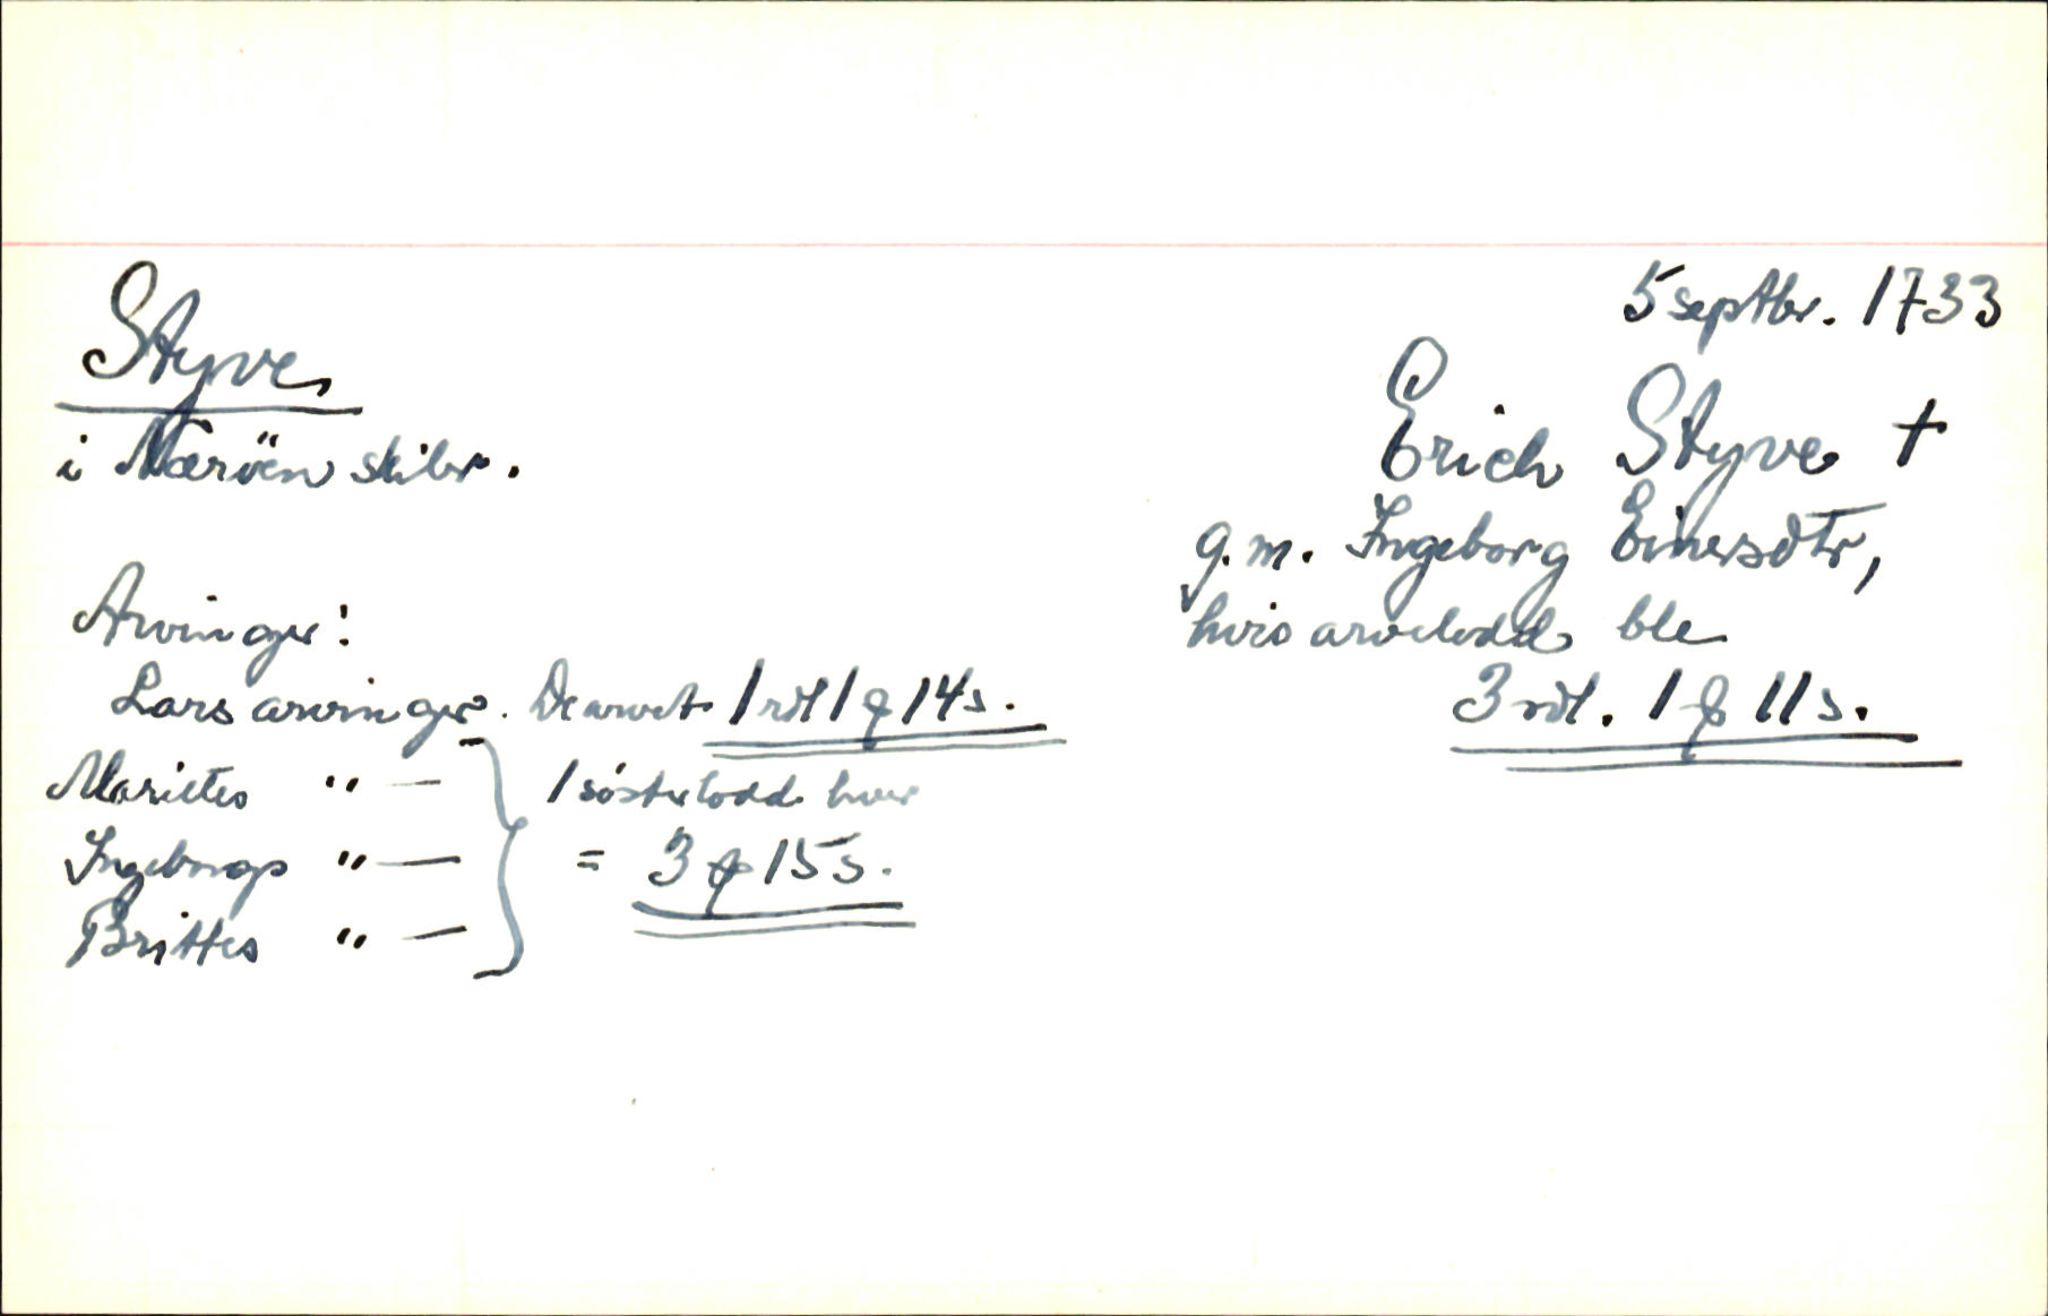 5 septbr. 1733
Styve
i Næröen skibr.
Erich Styve †
g.m. Ingeborg Einersdtr,
hvis arvelodd ble
3 rdl. 1 ƍ 11 s.
Arvinger:
Lars arvinger. De arvet 1 rdl 1 ƍ 14 s.
Marites " —
Ingeborgs " —
Brittes " —
1 søsterlodd hver
= 3 ƍ 15 s.